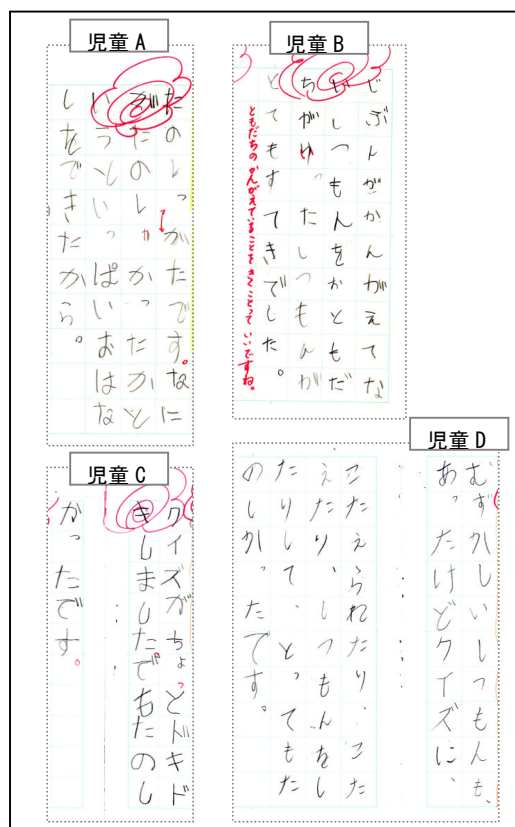 児童A
たのしっがたです。なに
がたのしかったかと
いうといっぱいおはな
しをできたから。
児童B
じぶんがかんがえてな
いしつもんをかともだ
ちがゆったしつもんが
とてもすてきでした。
ともだちのかんがえていることをきくことっていいですね。
児童C
クイズがちょっとドキド
キしましたでもたのし
かったです。
児童D
むずかしいしつもんも、
あったけどクイズに、
こたえられたり、こた
えたり、しつもんをし
たりして、とってもた
のしかったです。